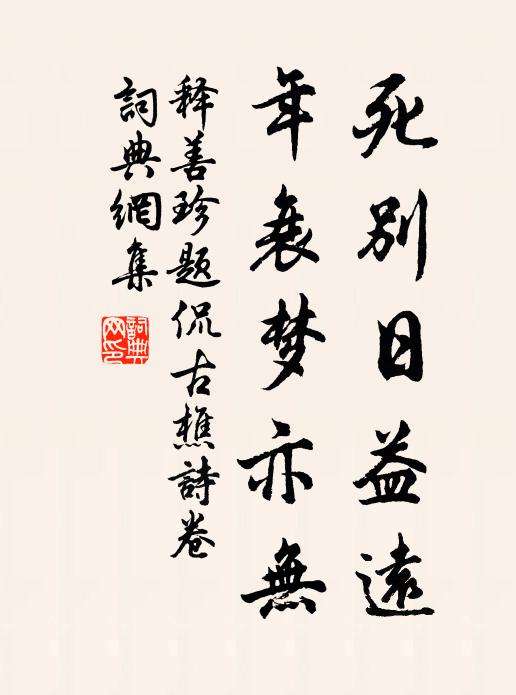 死別日益遠
年衰梦亦無
释善珍題侃古樵詩卷
詞典網集
詞典网印